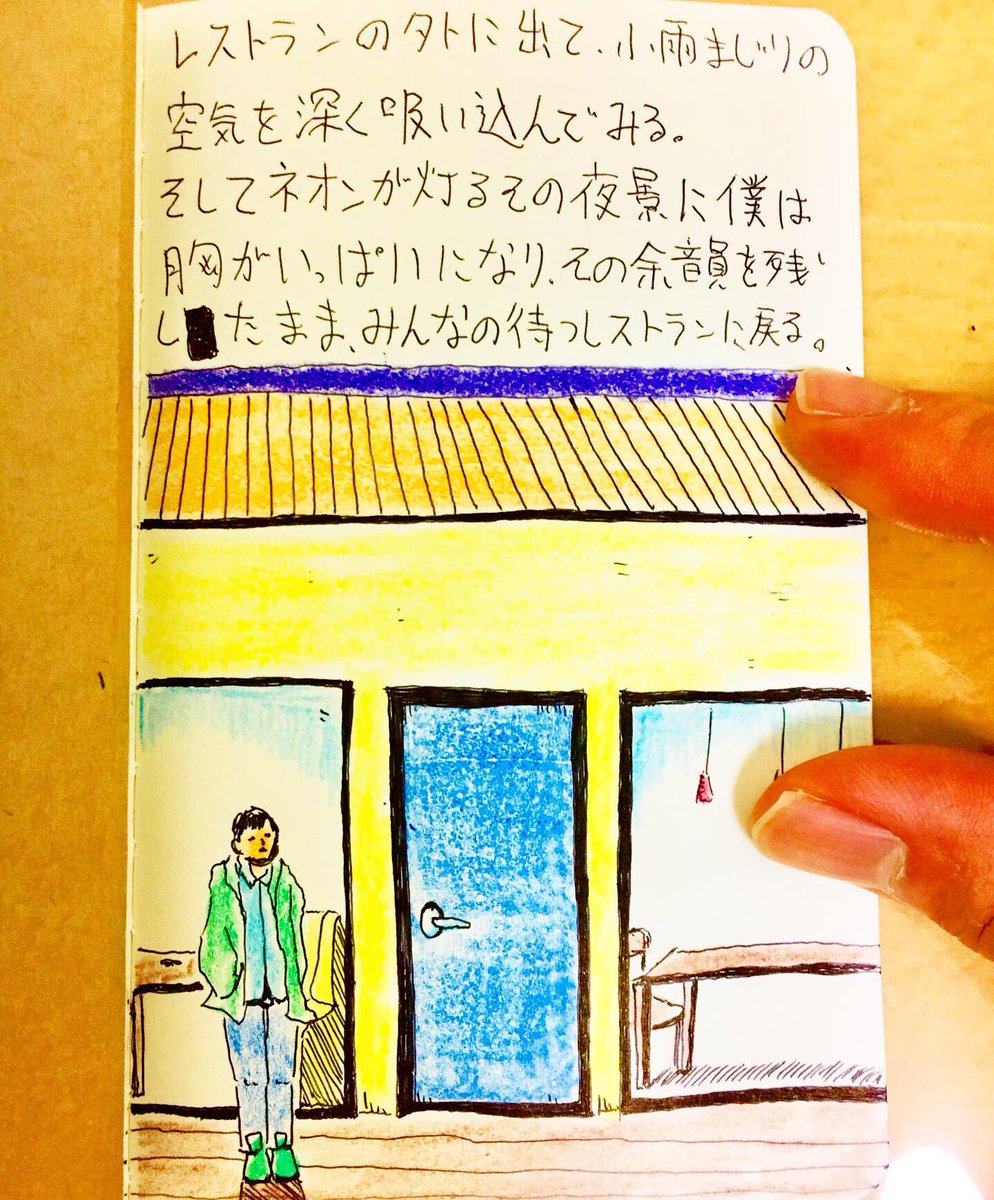 レストランの外に出て、小雨まじりの
空気を深く吸い込んでみる。
そしてネオンが灯るその夜景に僕は
胸がいっぱいになり、その余韻を残
したまま、みんなの待つレストランに戻る。